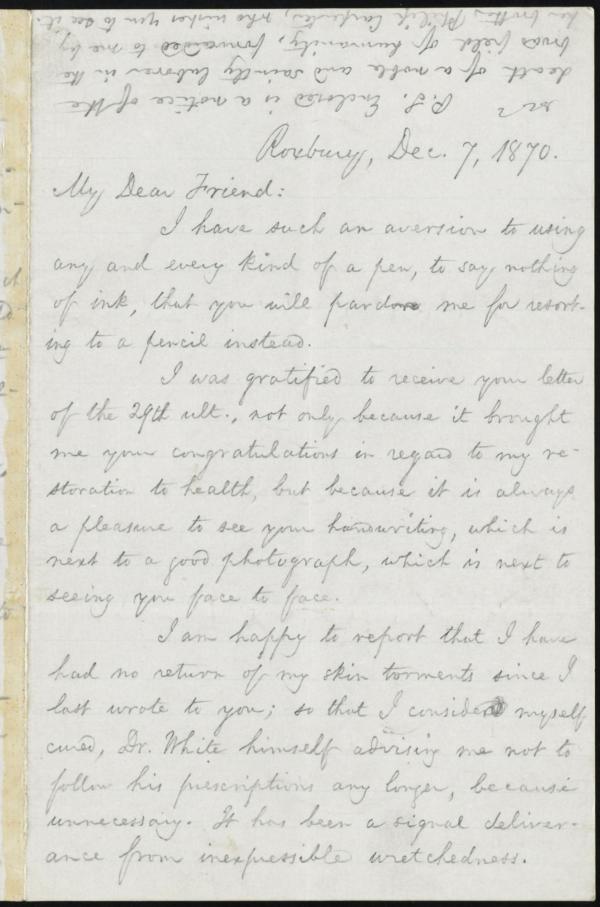 P.S. Enclosed is a notice of the
death of a noble and saintly laborer in the
broad field of humanity, forwarded to me by
her brother, Philip Carpenter, who wishes you to see it.
Roxbury, Dec. 7, 1870.
My Dear Friend:
I have such an aversion to using
any and every kind of a pen, to say nothing
of ink, that you will pardon me for resort-
ing to a pencil instead.
I was gratified to receive your letter
of the 29th ult., not only because it brought
me your congratulations in regard to my re-
storation to health, but because it is always
a pleasure to see your handwriting, which is
next to a good photograph, which is next to
seeing you face to face.
I am happy to report that I have
had no return of my skin torments since I
last wrote to you; so that I consider myself
cured, Dr. White himself advising me not to
follow his prescriptions any longer, because
unnecessary. It has been a signal deliver-
ance from inexpressible wretchedness.